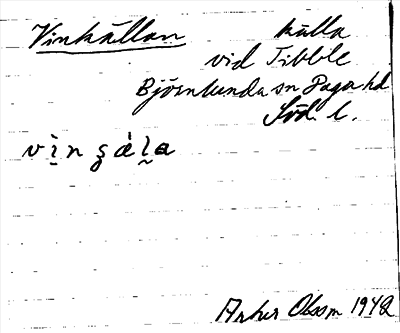 Vinkällan källa
vid Tibble
Björnlunda sn Daga hd
Söd. l.
vìnʂäl̥a
Arthur Olsson 1942